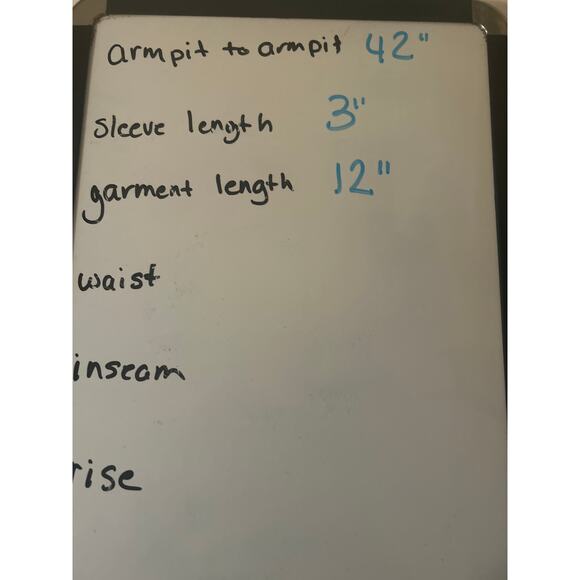 armpit to armpit 42"
sleeve length 3"
garment length 12"
waist
inseam
rise